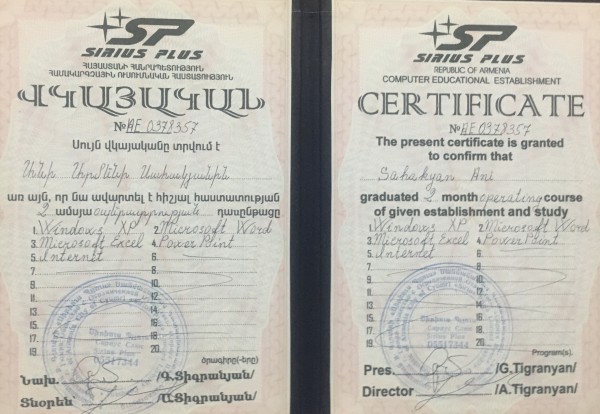 SP
SIRIUS PLUS
ՀԱՅԱՍՏԱՆԻ ՀԱՆՐԱՊԵՏՈՒԹՅՈՒՆ
ՀԱՄԱԿԱՐԳՉԱՅԻՆ ՈՒՍՈՒՄՆԱԿԱՆ ՀԱՍՏԱՏՈՒԹՅՈՒՆ
ՎԿԱՅԱԿԱՆ
№ AE 0378357
Սույն վկայականը տրվում է
Անի Սահակյանին
առ այն, որ նա ավարտել է հիշյալ հաստատության
2 ամսյա օպերացիոն դասընթացը
1. Windows XP 2. Microsoft Word
3. Microsoft Excel 4. Power Point
5. Internet 6.
7. 8.
9. 10.
11. 12.
13. 14.
15. 16.
17. 18.
19. 20.
05517344
ծրագիրը(-երը)
Նախ. /Գ.Տիգրանյան/
Տնօրեն /Ա.Տիգրանյան/
SP
SIRIUS PLUS
REPUBLIC OF ARMENIA
COMPUTER EDUCATIONAL ESTABLISHMENT
CERTIFICATE
№ AE 0378357
The present certificate is granted
to confirm that
Sahakyan Ani
graduated 2 month operating course
of given establishment and study
1. Windows XP 2. Microsoft Word
3. Microsoft Excel 4. Power Point
5. Internet 6.
7. 8.
9. 10.
11. 12.
13. 14.
15. 16.
17. 18.
19. 20.
05517344
Program(s).
Pres. /G.Tigranyan/
Director /A.Tigranyan/